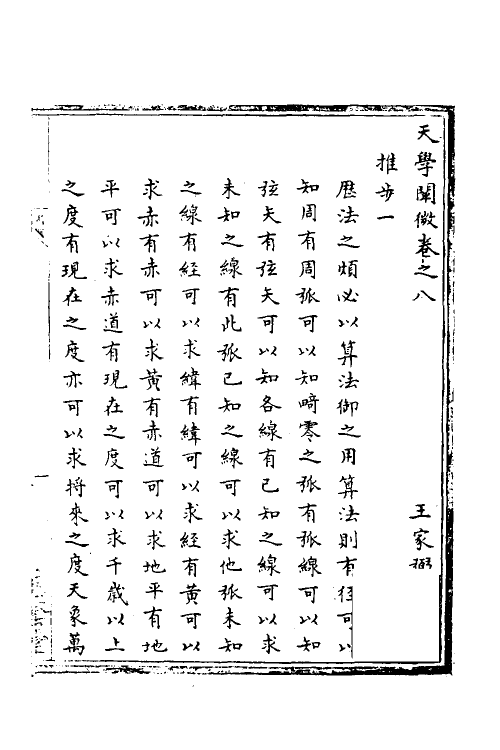 天學闡微卷之八
王家弼
推步一
歴法之煩必以算法御之用算法則有徑可以
知周有周弧可以知畸零之弧有弧線可以知
弦矢有弦矢可以知各線有已知之線可以求
未知之線有此弧已知之線可以求他弧未知
之線有経可以求緯有緯可以求経有黄可以
求赤有赤可以求黄有赤道可以求地平有地
平可以求赤道有現在之度可以求千歳以上
之度有現在之度亦可以求将來之度天象萬